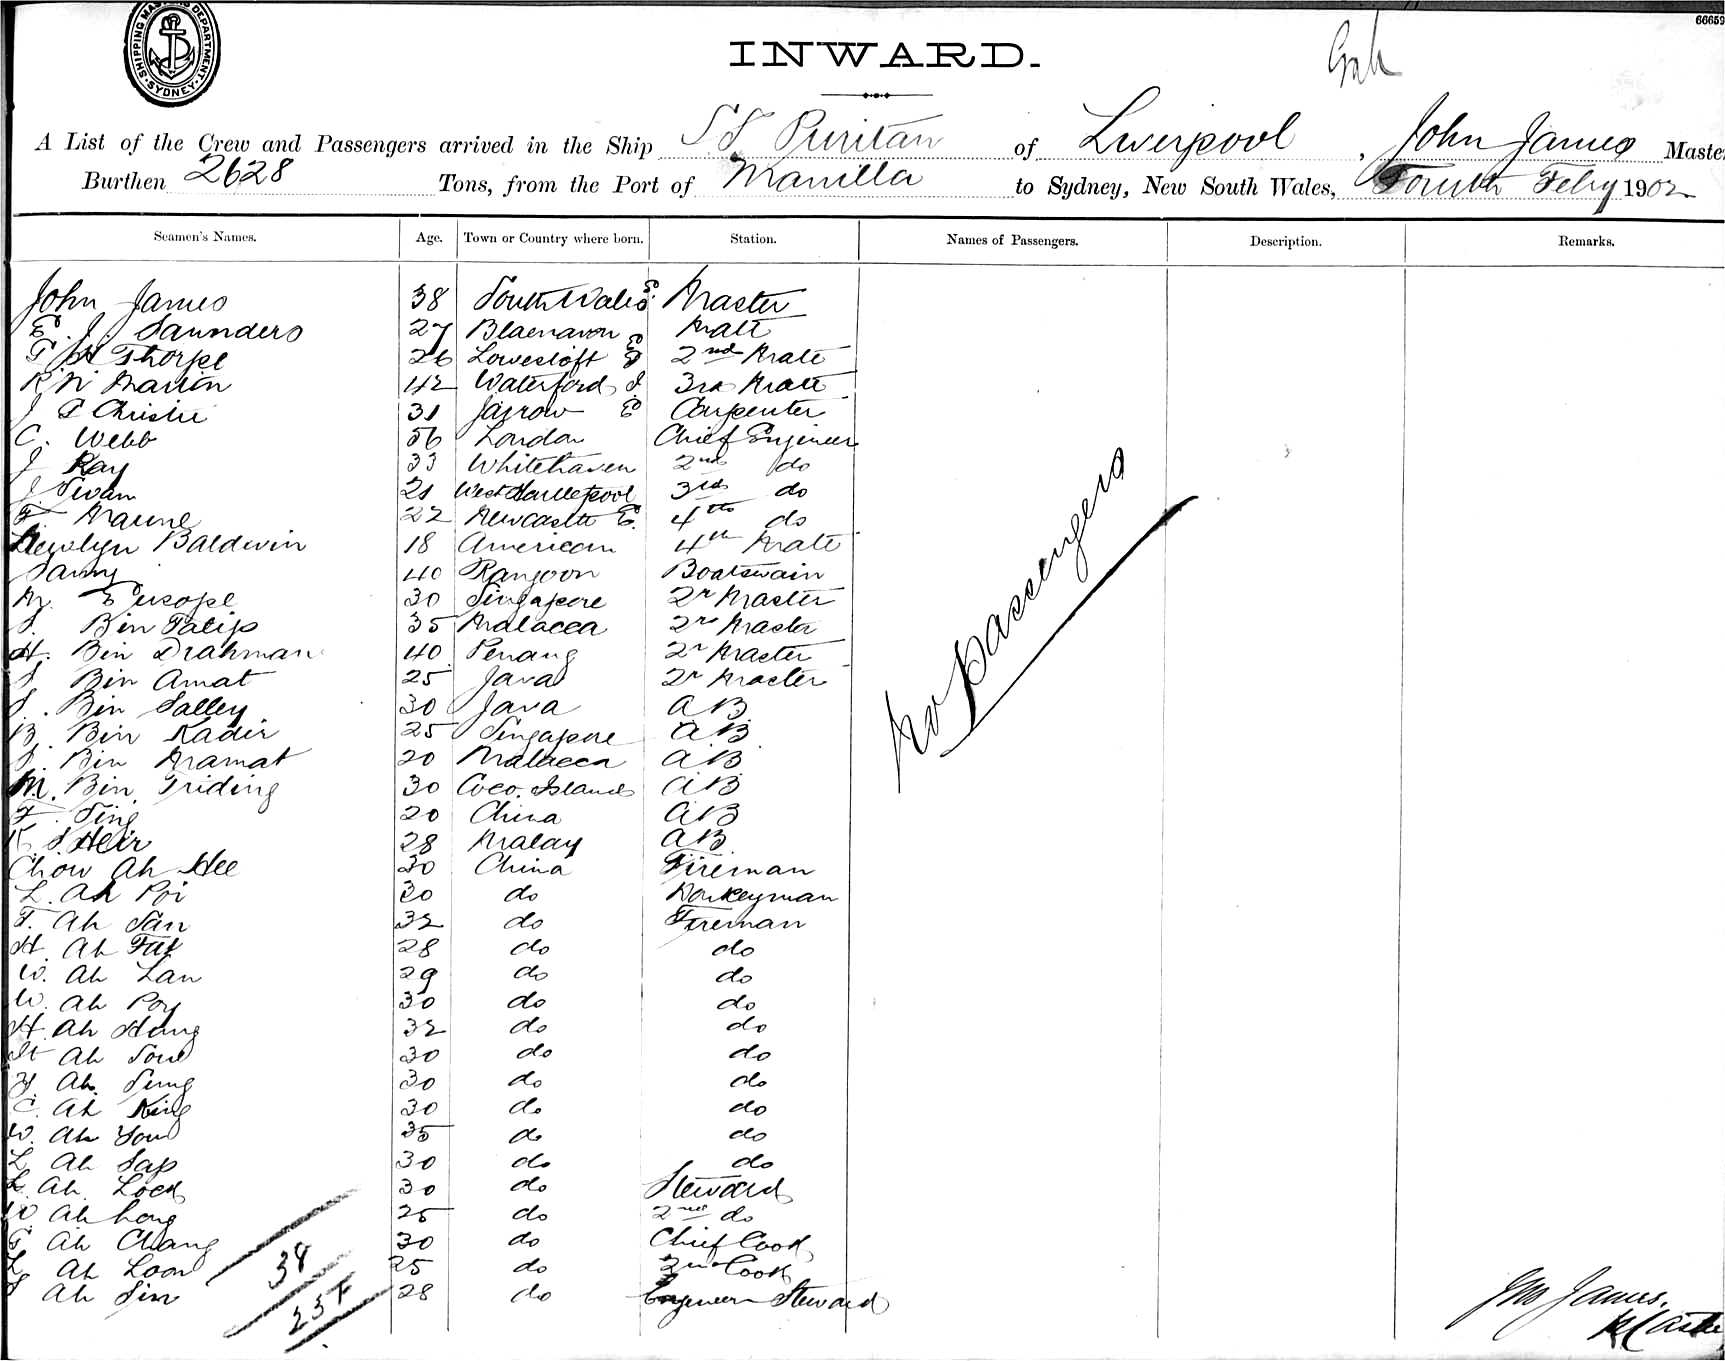 SHIPPING MASTERS DEPARTMENT · SYDNEY ·
66659
INWARD.
A List of the Crew and Passengers arrived in the Ship SS Puritan of Liverpool, John James Master
Burthen 2628 Tons, from the Port of Manilla to Sydney, New South Wales, Fourth Febry 1902
Seamen's Names. Age. Town or Country where born. Station. Names of Passengers. Description. Remarks.
John James 38 South Wales Master
E. J. Saunders 27 Blaenavon E Mate
Thorpe 26 Lowestoft E 2nd Mate
R W Martin 42 Waterford I 3rd Mate
J P Christie 31 Jarrow E Carpenter
C. Webb 56 London Chief Engineer
J Ray 33 Whitehaven 2nd do
J. Swan 21 West Hartlepool 3rd do
22 Newcastle E. 4th do
Llewelyn Baldwin 18 American 4th Mate
40 Rangoon Boatswain
30 Singapore 2r Master
S. Bin Talip 35 Malacca 2r Master
H. Bin Drahman 40 Penang 2r Master
S Bin Amat 25 Java 2r Master
S. Bin Salley 30 Java AB
B. Bin Kadir 25 Singapore AB
S. Bin Aramat 20 Malacca AB
M. Bin Triding 30 Coco. Islands AB
Ting 20 China AB
28 Malay AB
Chow Ah Hee 30 China Fireman
L. Ah Poi 30 do Donkeyman
T. Ah San 32 do Fireman
H Ah Fat 28 do do
W. Ah Lan 29 do do
W. Ah Poy 30 do do
H. Ah Hung 32 do do
Ah 30 do do
Y Ah Sung 30 do do
C. Ah King 30 do do
W. Ah You 35 do do
L Ah Sap 30 do do
L Ah Lock 30 do Steward
W Ah Long 25 do 2nd do
Ah Chang 30 do Chief Cook
L Ah Loon 25 do 2nd Cook
S Ah Sin 28 do Engineers Steward
No Passengers
38
237
Jno James.
Master